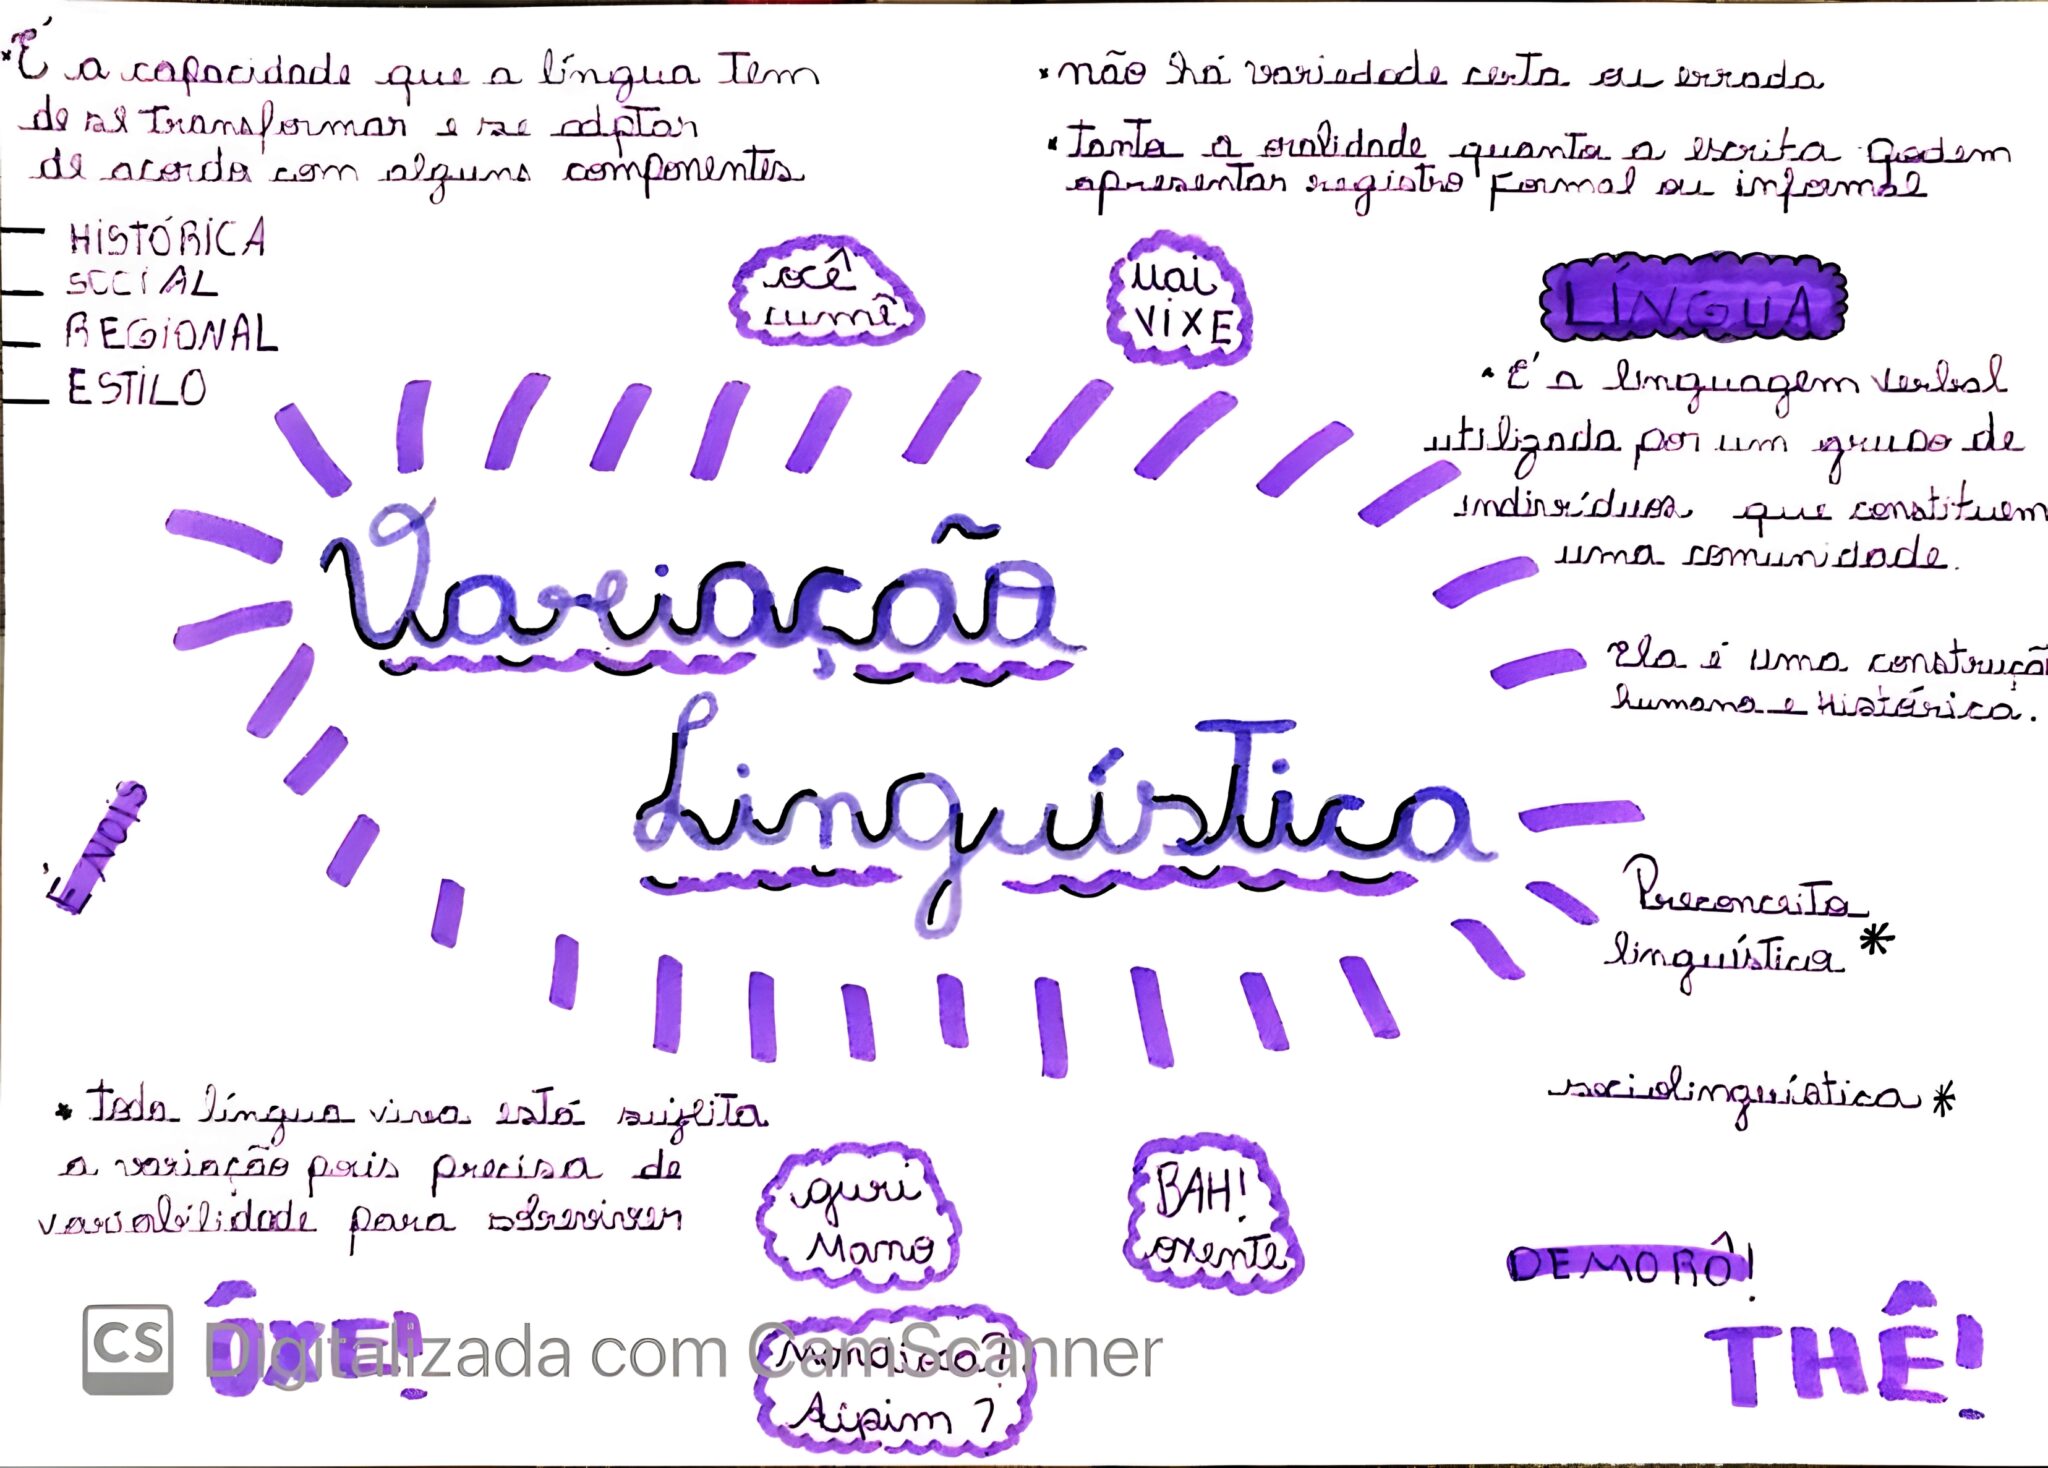 *É a capacidade que a língua tem
de se transformar e se adptar
de acordo com alguns componentes
HISTÓRICA
SOCIAL
REGIONAL
ESTILO
*não há variedade certa ou errada
*tanto a oralidade quanto a escrita podem
apresentar registro formal ou informal
ocê
cumê
uai
VIXE
LÍNGUA
*É a linguagem verbal
utilizada por um grupo de
indivíduos que constituem
uma comunidade.
Ela é uma construção
humana e Histórica.
Variação
Linguística
É NOIS
Preconceito
linguístico *
sociolinguística *
*Toda língua viva está sujeita
a variação pois precisa de
variabilidade para sobreviver
guri
Mano
BAH!
oxente
DEMORÔ!
ÔXE!
THÊ!
Mandioca?
Aipim?
CS Digitalizada com CamScanner